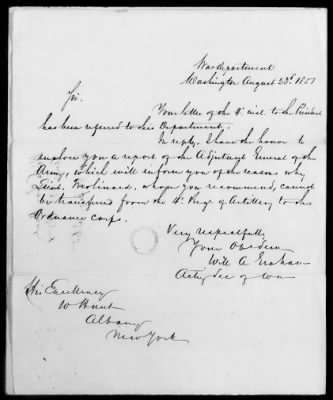 War Department
Washington August 23d. 1851
Sir.
Your letter of the 4" inst. to the President
has been referred to this Department.
In reply, I have the honor to
enclose you a report of the Adjutant General of the
Army, which will inform you of the reasons why
Lieut. whom you recommend, cannot
be transferred from the 4". Reg. of Artillery to the
Ordnance corps.
Very respectfully
Your Obedien
Will A Graham
Acting Sec of War
His Excellency
W Hunt
Albany
New York